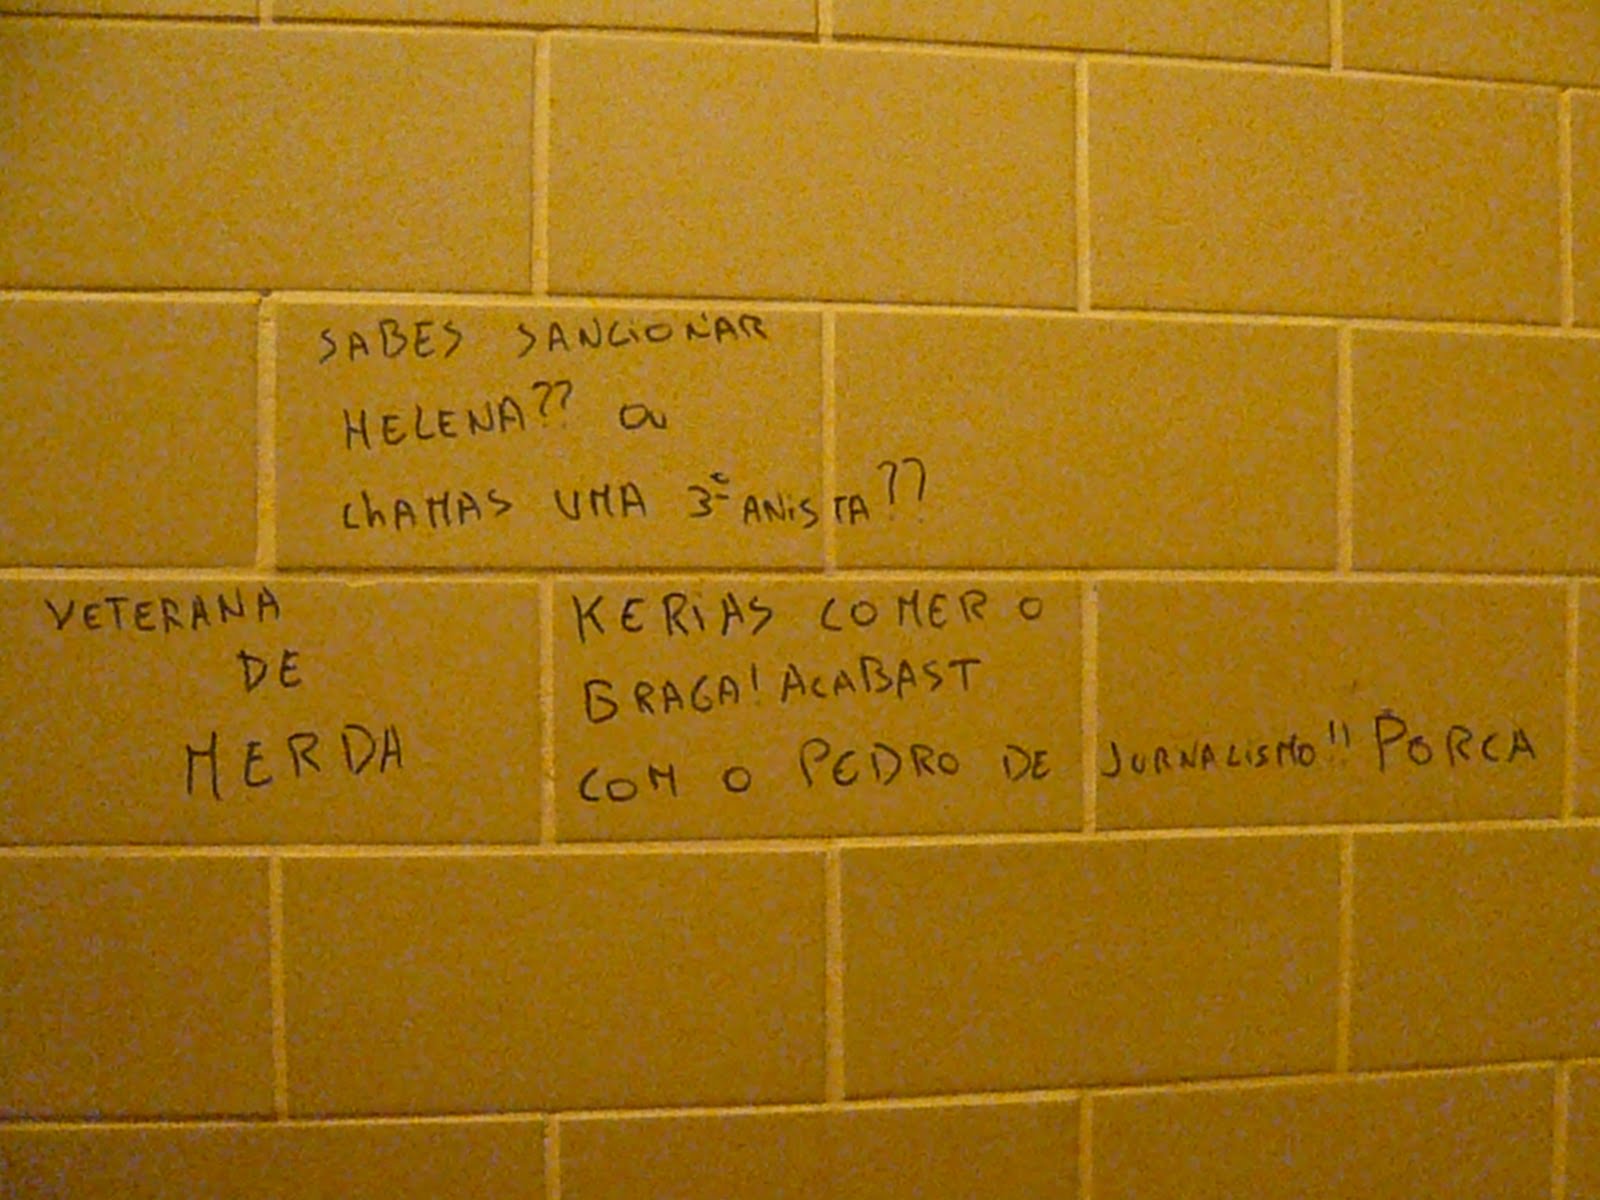 SABES SANCIONAR
HELENA?? OU
ChAMAS UMA 3ª ANiSTA??
VETERANA
DE
MERDA
KERiAS COMER O
BRAGA! ACABAST
COM O PEDRO DE JURNALiSMO!! PORCA